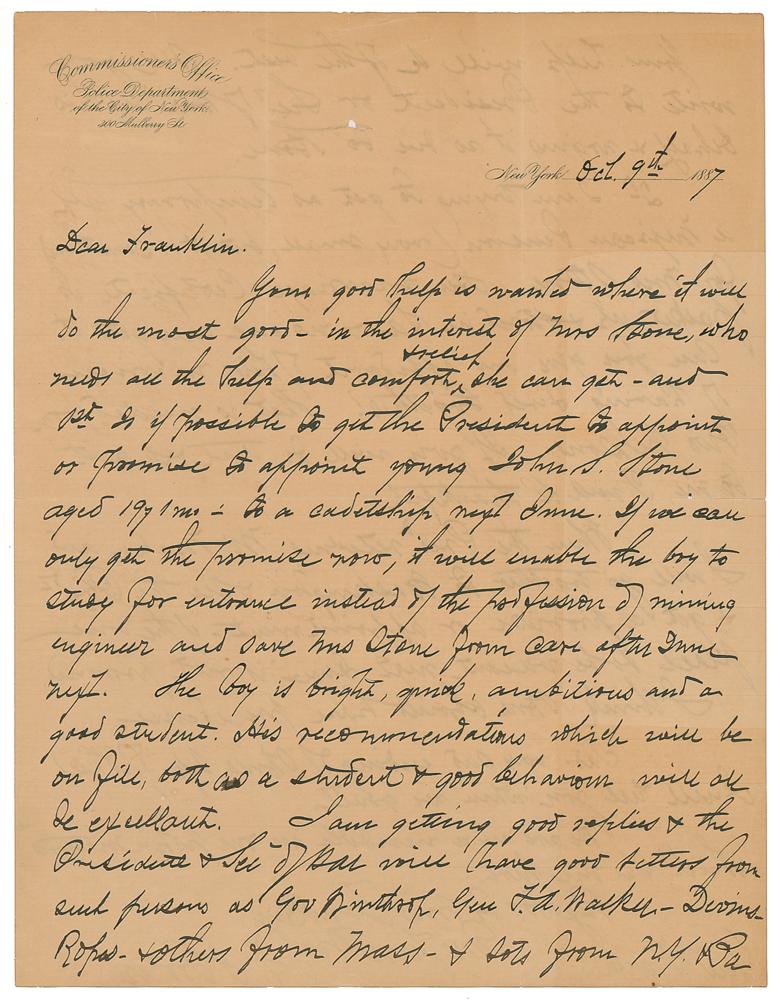 Commissioner's Office,
Police Department,
of the City of New York.
300 Mulberry St.
New York Oct. 9th 1887
Dear Franklin.
Your good help is wanted where it will
do the most good - in the interest of Mrs Stone, who
& relief
needs all the help and comfort, she can get - and
1st Is if possible to get the President to appoint
or promise to appoint young John S. Stone
aged 19 7 1 mo - to a cadetship next June. If we can
only get the promise now, it will enable the boy to
study for entrance instead of the profession of mining
engineer and save Mrs Stone from care after June
next. The boy is bright, quick, ambitious and a
good student. His recommendations which will be
on file, both as a student & good behaviour will all
be excellant. I am getting good replies & the
President & Sec of War will have good letters from
such persons as Gov Winthrop, Gen F. A. Walker, - Devins -
Ropes - & others from Mass - & lots from N.Y. & Pa